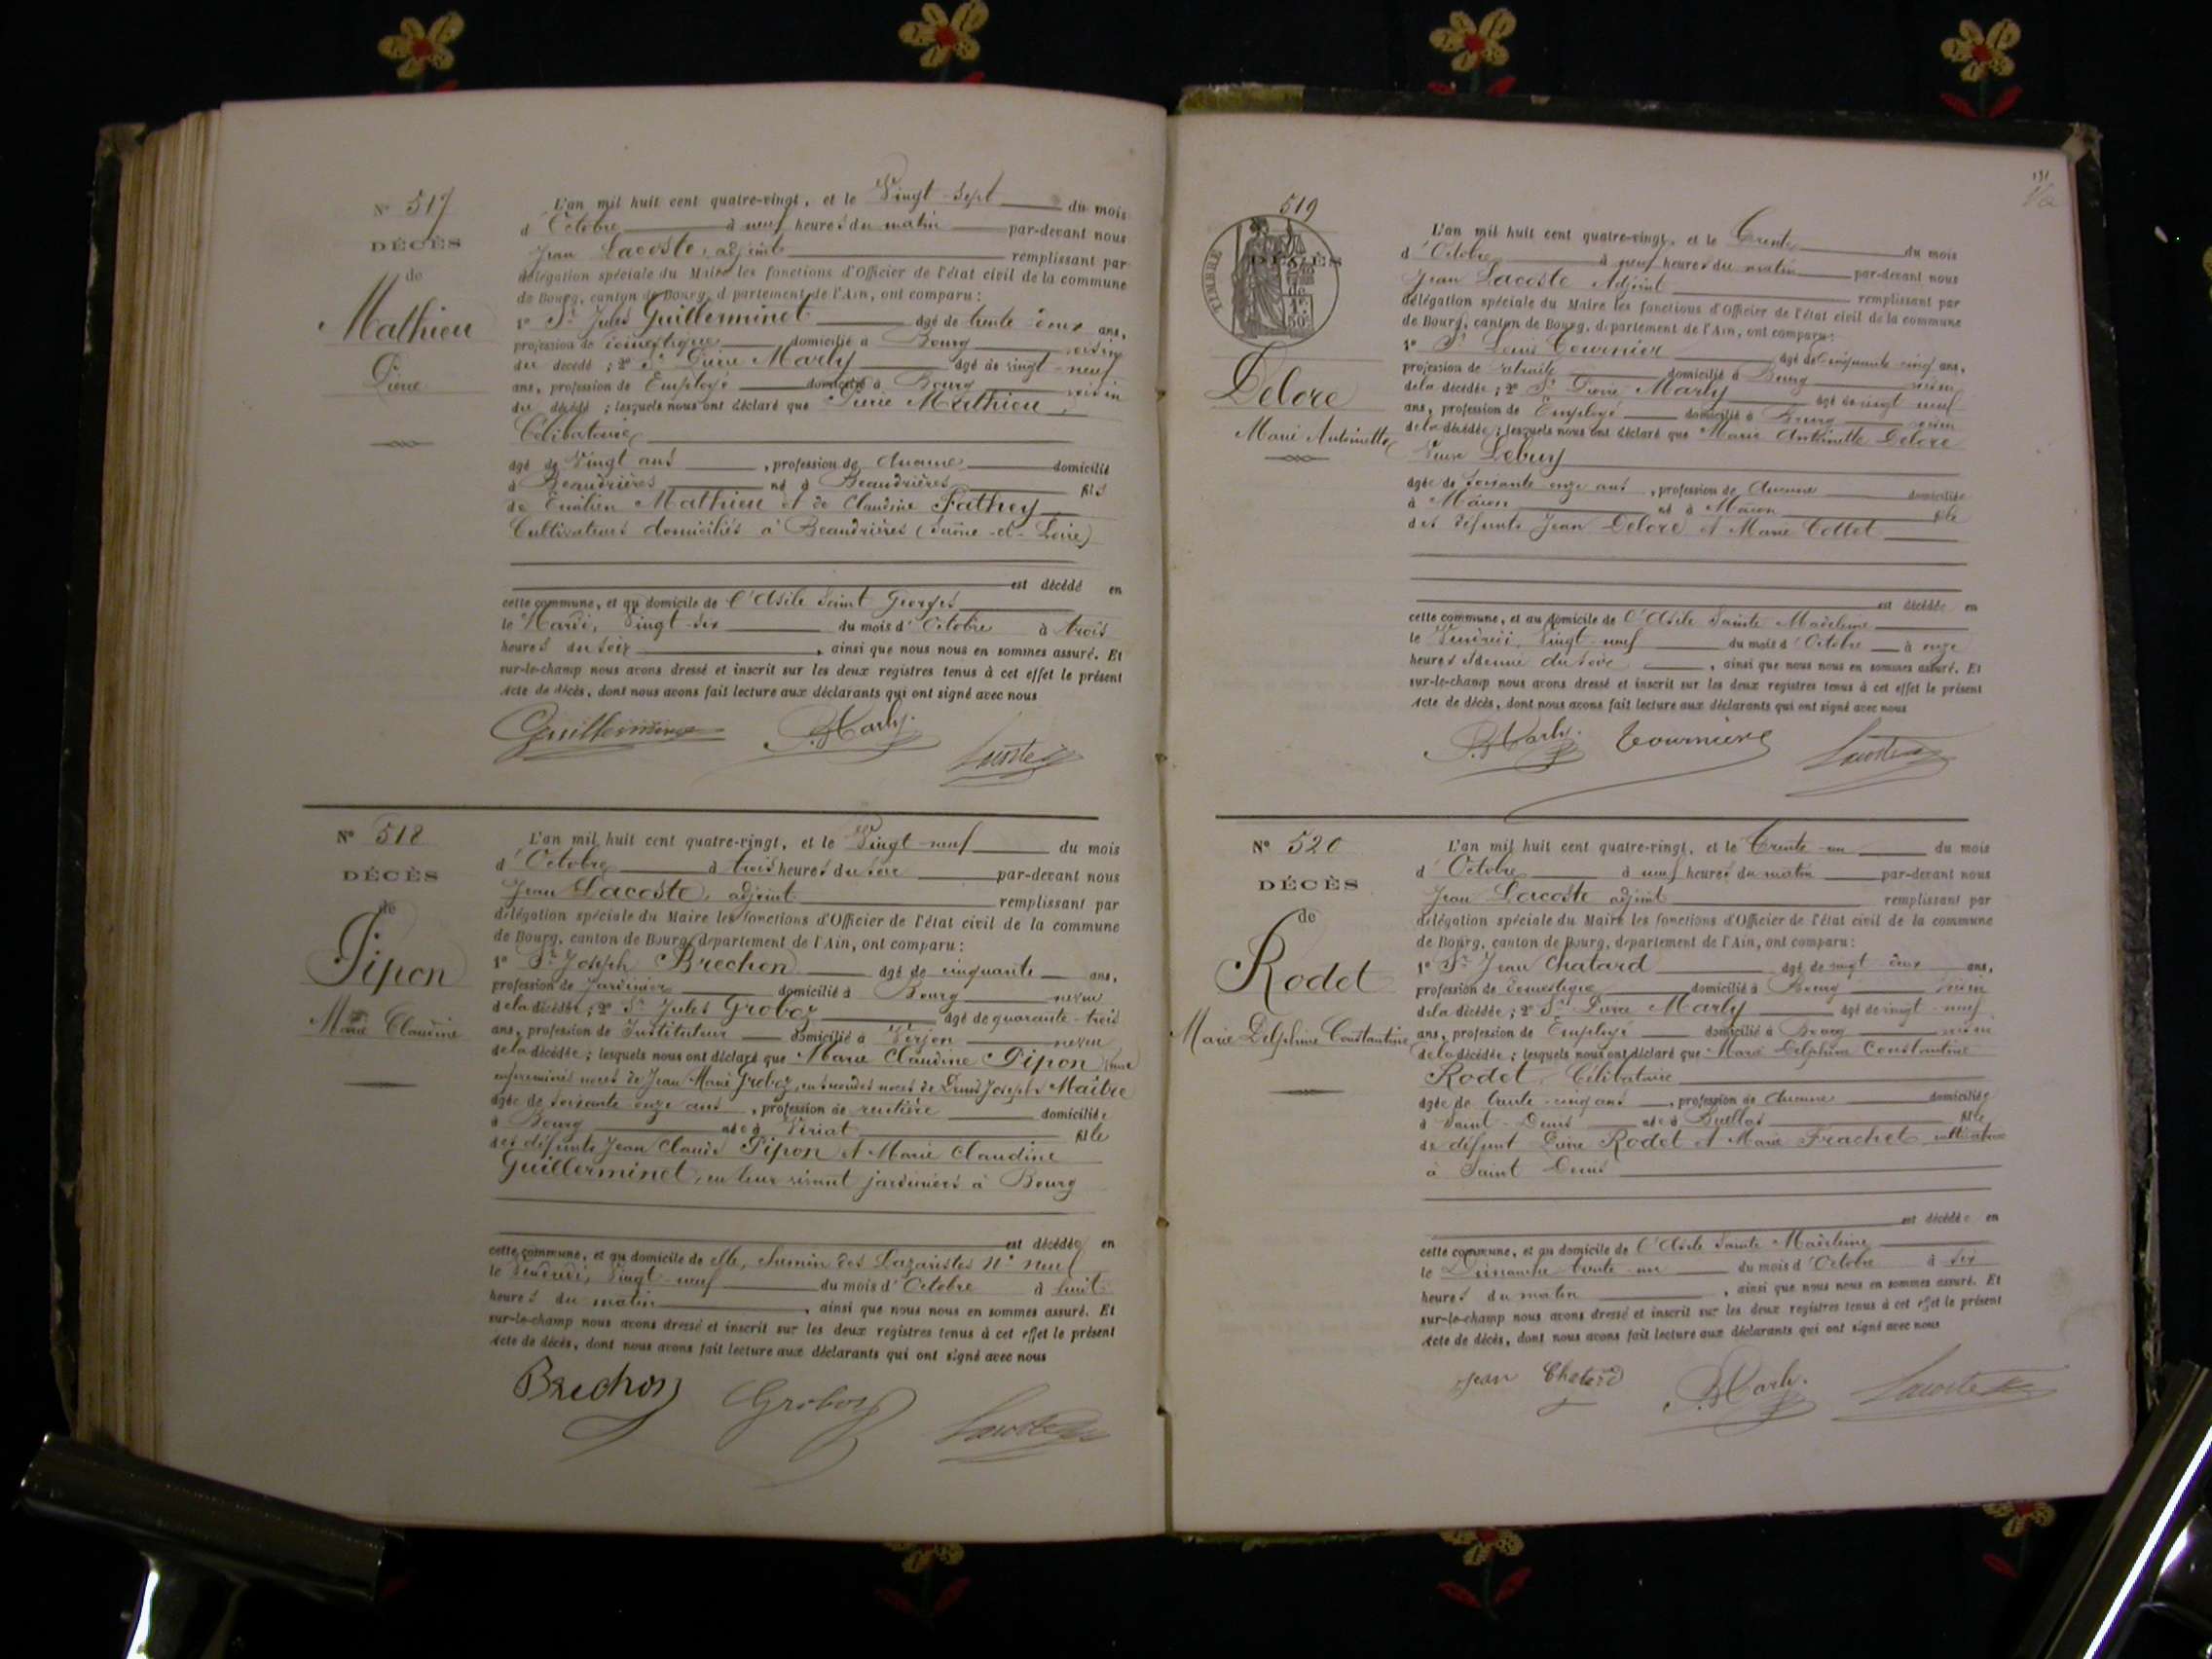 N° 517
DÉCÈS
de
Mathieu
Pierre
L'an mil huit cent quatre-vingt, et le Vingt-Sept du mois
d'Octobre à neuf heures du matin par-devant nous
Jean Lacoste, adjoint remplissant par
délégation spéciale du Maire les fonctions d'Officier de l'état civil de la commune
de Bourg, canton de Bourg, département de l'Ain, ont comparu :
1° Sr Jules Guillerminet âgé de trente deux ans,
profession de domestique domicilié à Bourg voisin
du décédé ; 2° Sr Pierre Marly âgé de vingt-neuf
ans, profession de Employé domicilié à Bourg voisin
du décédé ; lesquels nous ont déclaré que Pierre Mathieu,
Célibataire
âgé de Vingt ans, profession de Aucune domicilié
à Beaudrières né à Beaudrières fils
de Emilien Mathieu et de Claudine Fathey
Cultivateurs domiciliés à Beaudrières (Saône-et-Loire)
est décédé en
cette commune, et au domicile de l'Asile Saint Georges
le Mardi, Vingt-Six du mois d'Octobre à trois
heures du soir, ainsi que nous nous en sommes assuré. Et
sur-le-champ nous avons dressé et inscrit sur les deux registres tenus à cet effet le présent
Acte de décès, dont nous avons fait lecture aux déclarants qui ont signé avec nous
Guillerminet P. Marly. Lacoste
N° 518
DÉCÈS
de
Pipon
Marie Claudine
L'an mil huit cent quatre-vingt, et le Vingt-neuf du mois
d'Octobre à trois heures du soir par-devant nous
Jean Lacoste, adjoint remplissant par
délégation spéciale du Maire les fonctions d'Officier de l'état civil de la commune
de Bourg, canton de Bourg, département de l'Ain, ont comparu :
1° Sr Joseph Brechon âgé de cinquante ans,
profession de Jardinier domicilié à Bourg neveu
de la décédée ; 2° Sr Jules Groboz âgé de quarante-trois
ans, profession de Instituteur domicilié à Verjon neveu
de la décédée ; lesquels nous ont déclaré que Marie Claudine Pipon Veuve
en premières noces de Jean Marie Groboz, en secondes noces de Denis Joseph Maître
âgée de soixante onze ans, profession de rentière domiciliée
à Bourg née à Viriat fille
des défunts Jean Claude Pipon et Marie Claudine
Guillerminet, en leur vivant jardiniers à Bourg
est décédée en
cette commune, et au domicile de elle, chemin des Lazaristes N° neuf
le Vendredi, Vingt-neuf du mois d'Octobre à huit
heures du matin, ainsi que nous nous en sommes assuré. Et
sur-le-champ nous avons dressé et inscrit sur les deux registres tenus à cet effet le présent
Acte de décès, dont nous avons fait lecture aux déclarants qui ont signé avec nous
Brechon Groboz Lacoste
131
519
TIMBRE
DÉCÈS
de
1F. 50C.
Delore
Marie Antoinette
L'an mil huit cent quatre-vingt, et le Trente du mois
d'Octobre à neuf heures du matin par-devant nous
Jean Lacoste Adjoint remplissant par
délégation spéciale du Maire les fonctions d'Officier de l'état civil de la commune
de Bourg, canton de Bourg, département de l'Ain, ont comparu :
1° Sr Louis Tournier âgé de Cinquante cinq ans,
profession de retraité domicilié à Bourg voisin
de la décédée ; 2° Sr Pierre Marly âgé de vingt neuf
ans, profession de Employé domicilié à Bourg voisin
de la décédée ; lesquels nous ont déclaré que Marie Antoinette Delore
Veuve Lebuy
âgée de soixante onze ans, profession de Aucune domiciliée
à Mâcon né à Mâcon fille
des défunts Jean Delore et Marie Cottet
est décédée en
cette commune, et au domicile de l'Asile Sainte Madeleine
le Vendredi, Vingt-neuf du mois d'Octobre à onze
heures et demie du soir, ainsi que nous nous en sommes assuré. Et
sur-le-champ nous avons dressé et inscrit sur les deux registres tenus à cet effet le présent
Acte de décès, dont nous avons fait lecture aux déclarants qui ont signé avec nous
P. Marly. Tournier Lacoste
N° 520
DÉCÈS
de
Rodet
Marie Delphine Constantine
L'an mil huit cent quatre-vingt, et le Trente-un du mois
d'Octobre à neuf heures du matin par-devant nous
Jean Lacoste adjoint remplissant par
délégation spéciale du Maire les fonctions d'Officier de l'état civil de la commune
de Bourg, canton de Bourg, département de l'Ain, ont comparu :
1° Sr Jean Chatard âgé de vingt deux ans,
profession de domestique domicilié à Bourg voisin
de la décédée ; 2° Sr Pierre Marly âgé de vingt-neuf
ans, profession de Employé domicilié à Bourg voisin
de la décédée ; lesquels nous ont déclaré que Marie Delphine Constantine
Rodet, Célibataire
âgée de trente-cinq ans, profession de Aucune domiciliée
à Saint-Denis née à Buellas fille
de défunt Pierre Rodet et Marie Frachet cultivatrice
à Saint Denis
est décédée en
cette commune, et au domicile de l'Asile Sainte Madeleine
le Dimanche trente-un du mois d'Octobre à six
heures du matin, ainsi que nous nous en sommes assuré. Et
sur-le-champ nous avons dressé et inscrit sur les deux registres tenus à cet effet le présent
Acte de décès, dont nous avons fait lecture aux déclarants qui ont signé avec nous
Jean Chatard P. Marly. Lacoste